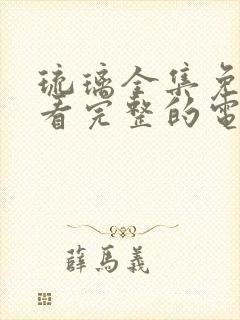 琉璃全集免
看完整的電
薛馬義